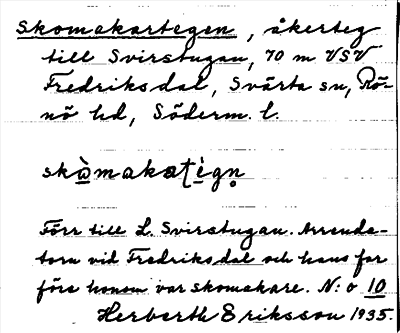 Skomakartegen, åkerteg
till Svirstugan, 70 m VSV
Fredriksdal, Svärta sn, Rö-
nö hd, Söderm. l.
skòmakatègn̥
Förr till L. Svirstugan. Arrenda-
torn vid Fredriksdal och hans far
före honom var skomakare. N:o 10
Herberth Eriksson 1935.